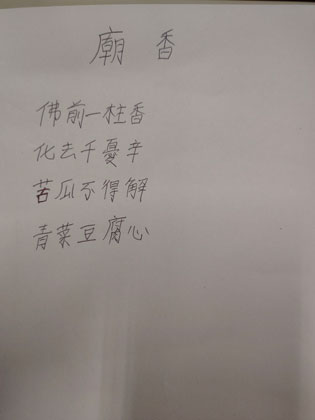 廟香
佛前一柱香
化去千憂辛
苦瓜不得解
青菜豆腐心